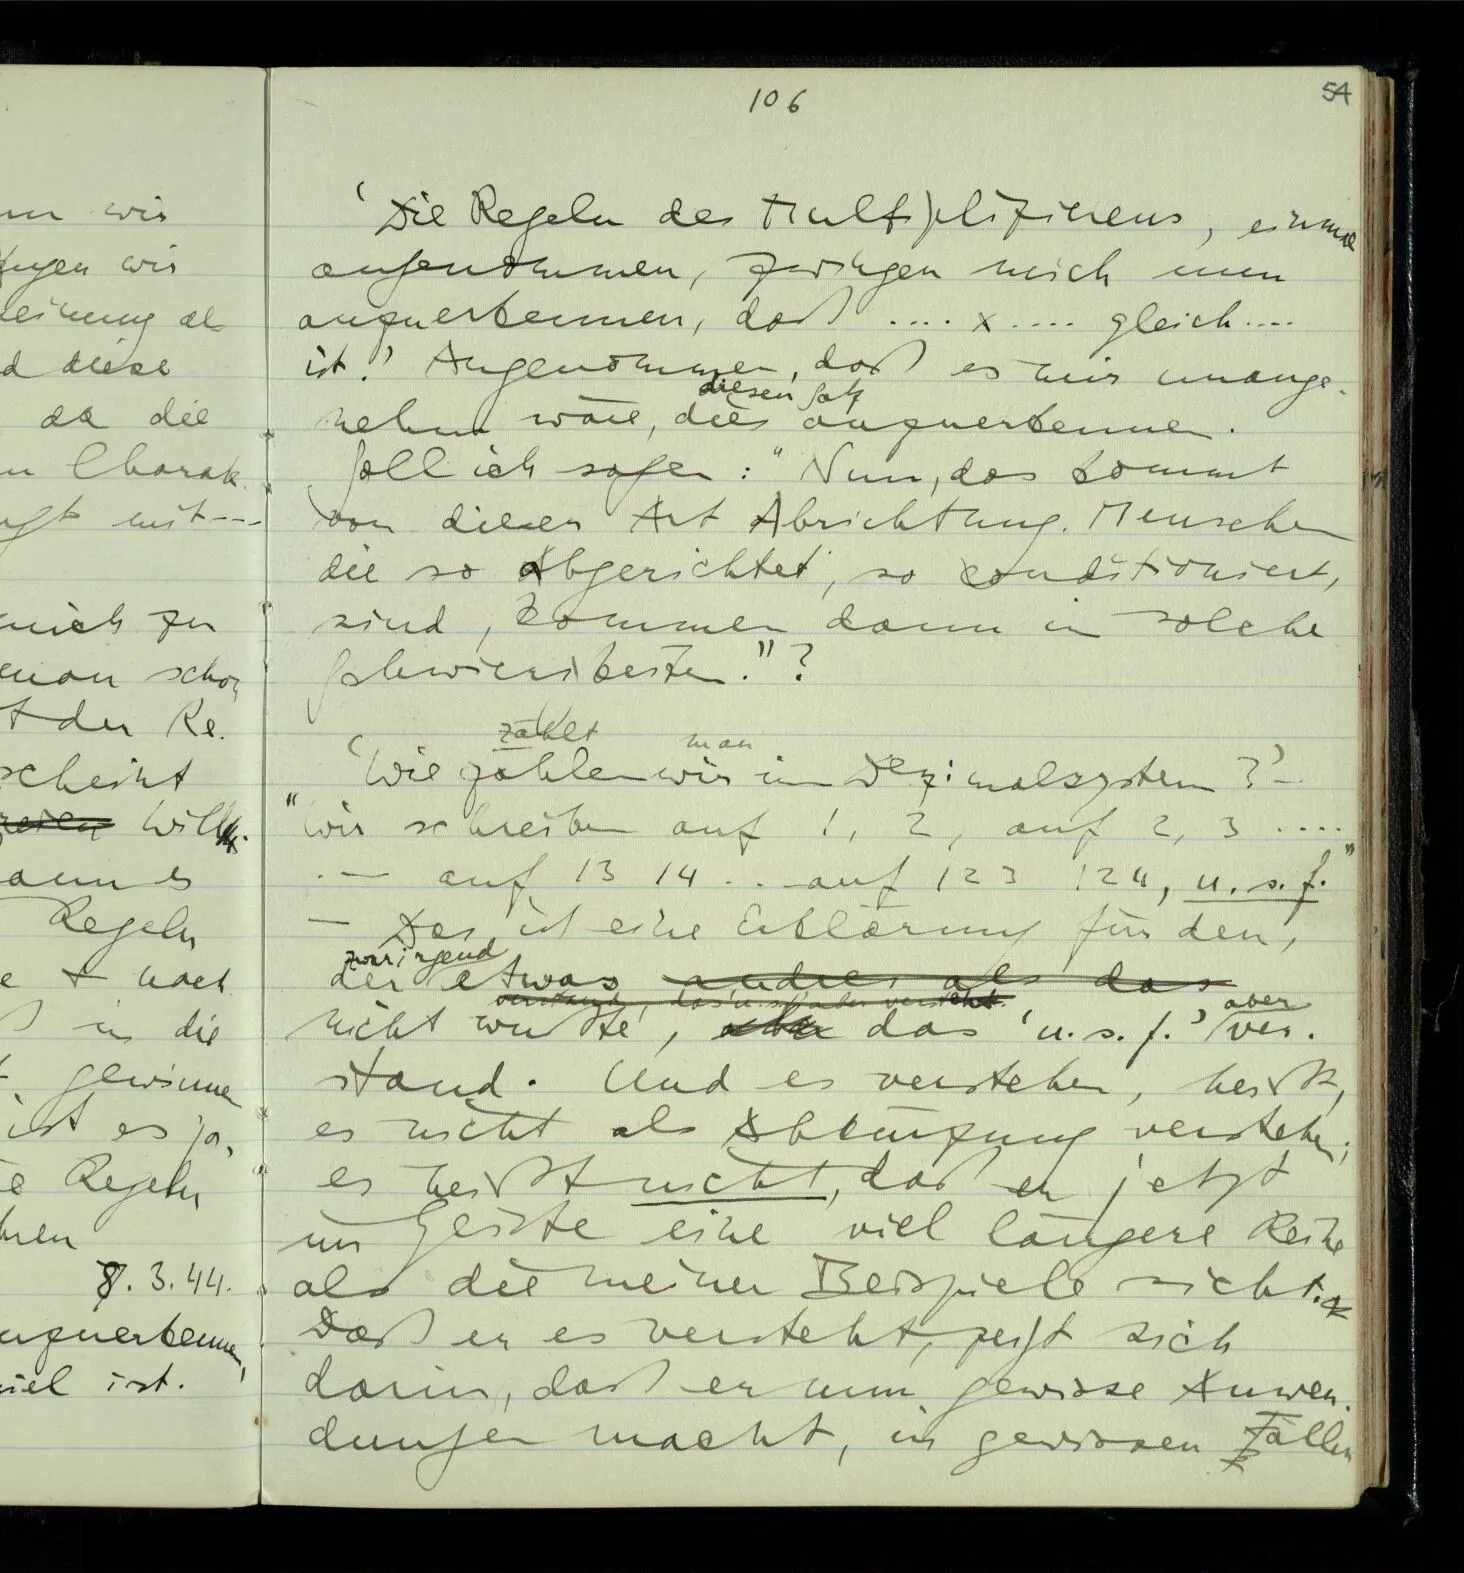 106
54
nn wir
ngen wir
einung al
d diese
da die
n Charak-
gt mit---
mich zu
man schon
t der Re-
scheint
Willk-
ann es
Regeln
e + nach
in die
gewinne
ist es ja,
e Regeln
hren
8.3.44.
anzuerkennen,
viel ist.
‘Die Regeln des Multiplizierens, einmal
angenommen, zwingen mich nun
anzuerkennen, daß .... x .... gleich ....
ist.’ Angenommen, daß es mir unange-
diesen Satz
nehm wäre, dies anzuerkennen.
Soll ich sagen: “Nun, das kommt
von dieser Art Abrichtung. Menschen
die so abgerichtet, so conditioniert,
sind, kommen dann in solche
Schwierigkeiten.”?
zählt man
‘Wie zählen wir im Dezimalsystem?’ –
“Wir schreiben auf 1, 2, auf 2, 3 ....
.– auf 13 14 ... auf 123 124, u.s.f.”
– Das ist eine Erklärung für den,
zwar irgend
der etwas anders als das
versteht, das u.s.f. aber versteht
nicht wußte, aber das ‘u.s.f.’ aber ver-
stand. Und es verstehen, heißt,
es nicht als Abkürzung verstehen;
es heißt nicht, daß er jetzt
im Geiste eine viel längere Reihe
als die meiner Beispiele sieht.
Daß er es versteht, zeigt sich
darin, daß er nun gewisse Anwen-
dungen macht, in gewissen Fällen